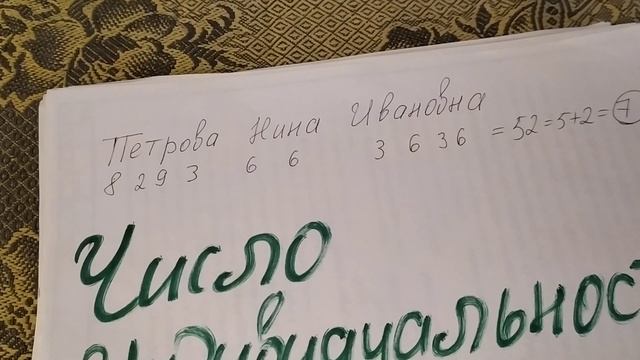 Петрова Нина Ивановна
8 2 9 3 6 6 3 6 3 6 = 52 = 5+2 = 7
Число
индивидуальнос